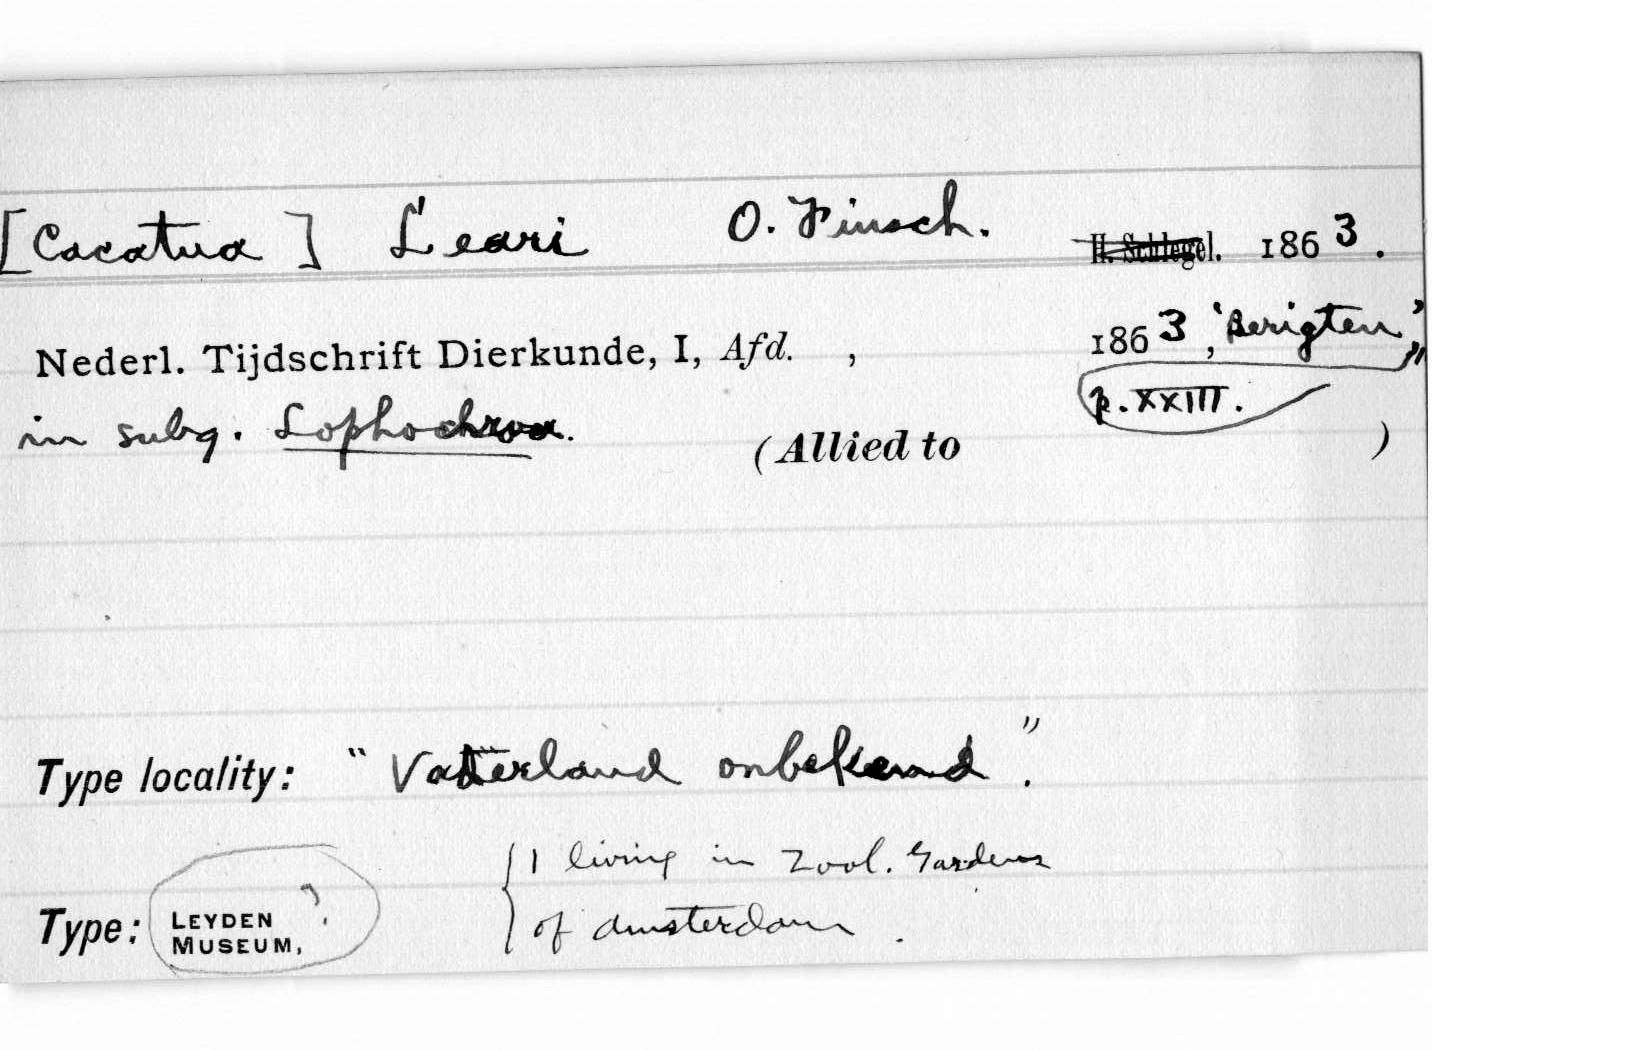 [Cacatua] Leari O. Finsch. H. Schlegel. 1863.
Nederl. Tijdschrift Dierkunde, I, Afd. , 1863, 'Berigten,'
p. XXIII.
in subg. Lophochroa. (Allied to )
Type locality: "Vaterland onbekend".
Type: LEYDEN MUSEUM, ? { 1 living in Zool. Gardens
of Amsterdam.